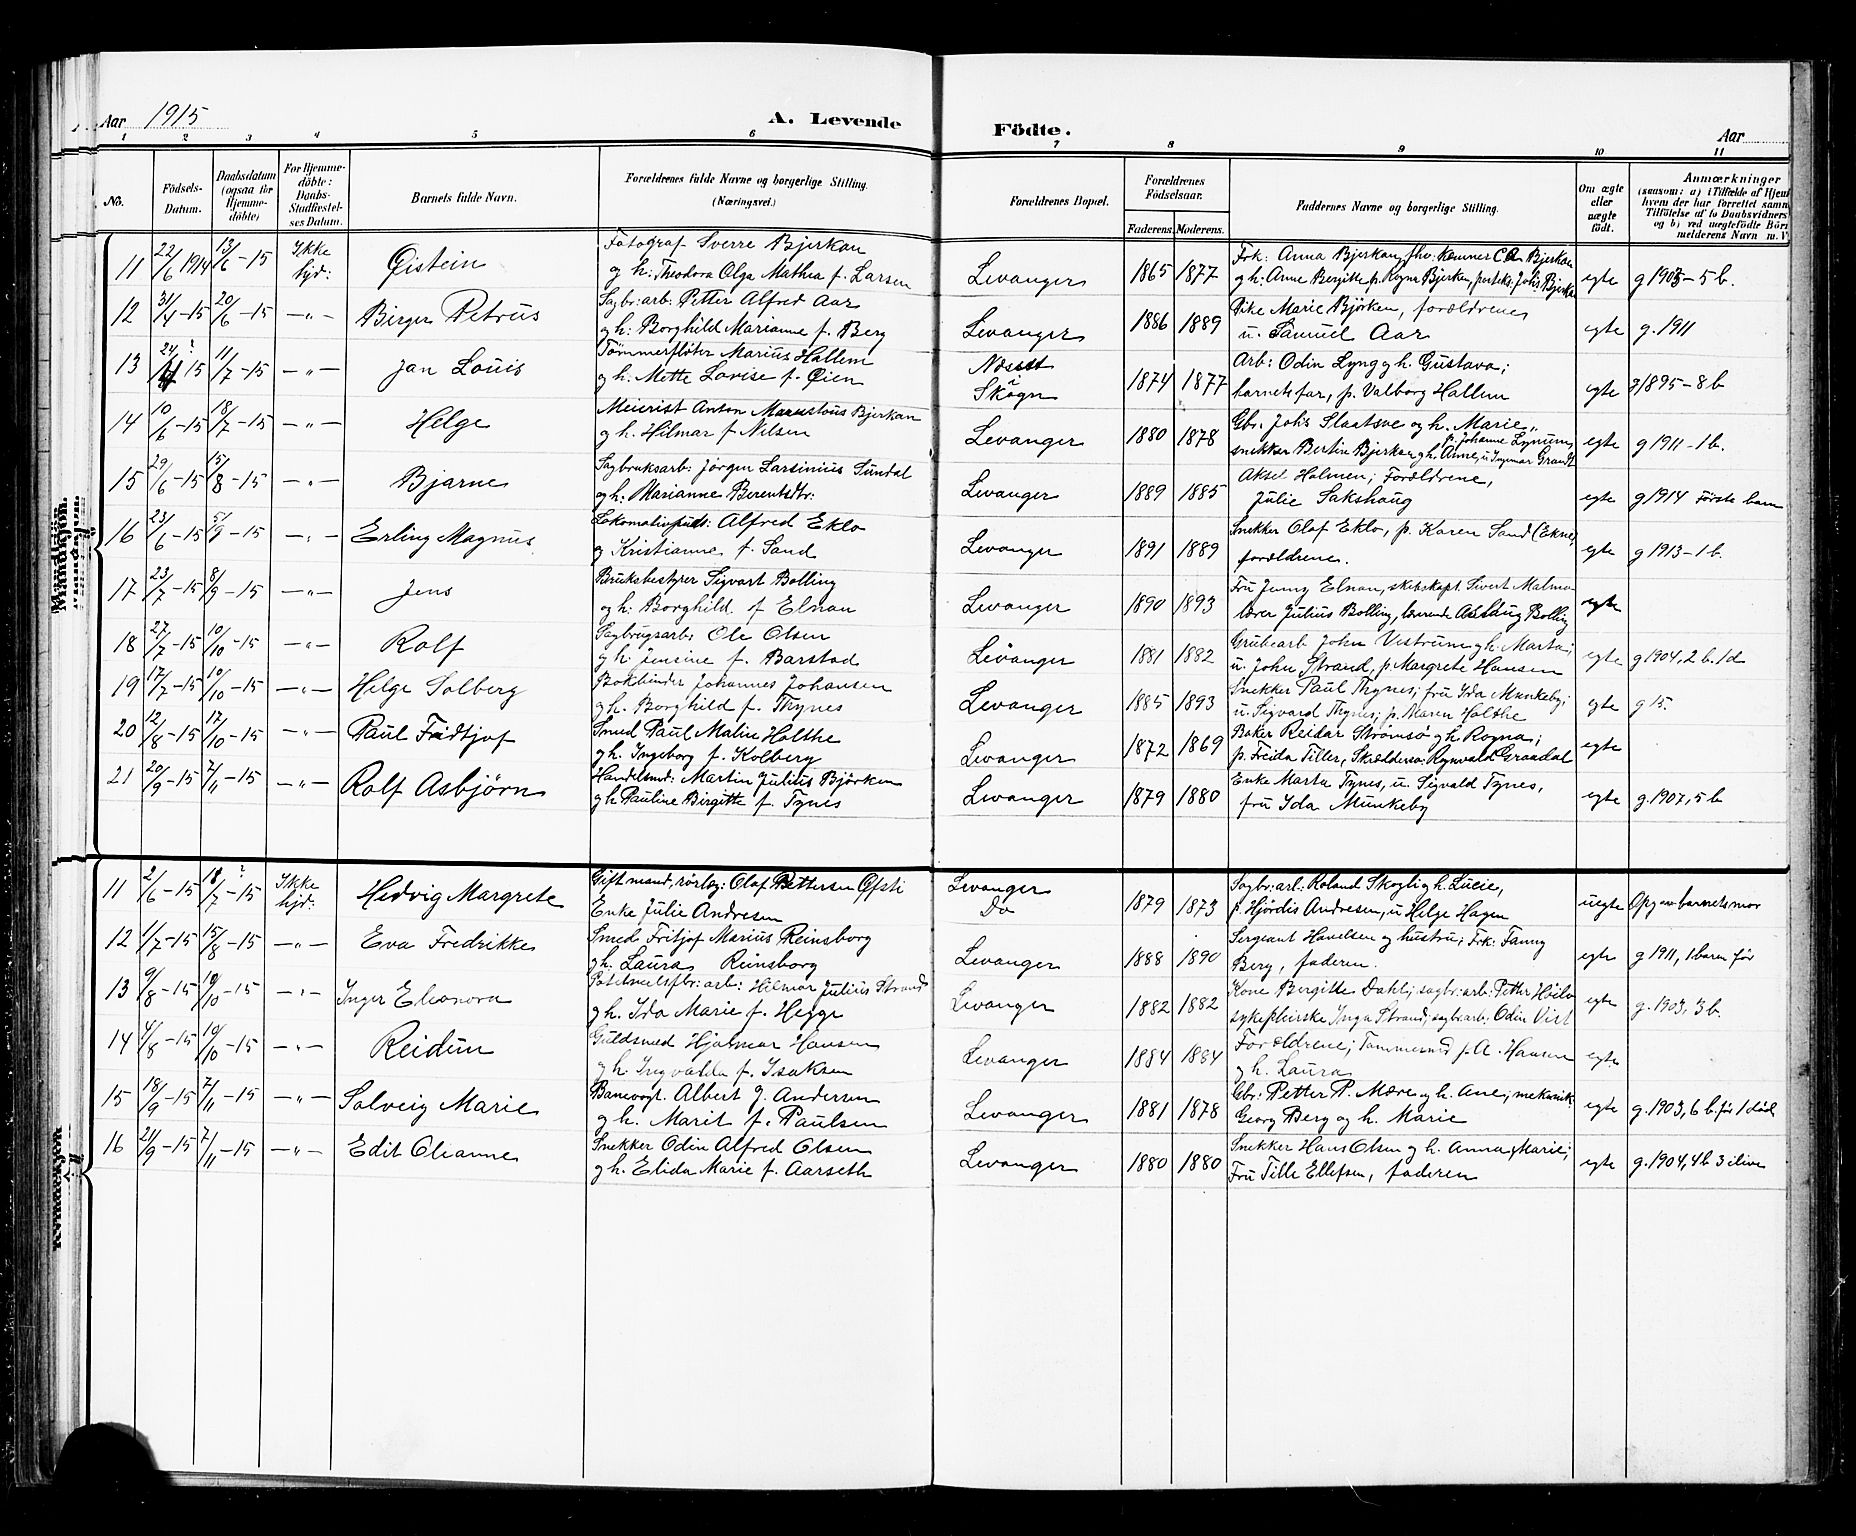 Aar 1915
A. Levende Födte.
Aar
1 2 3 4 5 6 7 8 9 10 11
No.
Födsels-Datum.
Daabsdatum (ogsaa for Hjemme-döbte)
For Hjemme-döbte: Daabs-Stadfæstel-ses Datum.
Barnets fulde Navn.
Forældrenes fulde Navne og borgerlige Stilling. (Næringsvei.)
Forældrenes Bopæl.
Forældrenes Födselsaar.
Faderens. Moderens.
Faddernes Navne og borgerlige Stilling.
Om ægte eller uægte födt.
Anmærkninger
(saasom: a) i Tilfælde af Hjem
hvem der har forrettet samm
Tilföielse af to Daabsvidners
og b) ved uegtefödte Bör
melderens Navn m. V
Mandkjøn
11 22/6 1914 13/6-15 Ikke hjd: Øistein Fotograf Sverre Bjerkan
og h: Theodora Olga Mathea f. Larsen Levanger 1865 1877 Frk: Anna Bjerkan, fhv. kæmner C A Bjerkan
og h: Anne Bergitte, p. Ragna Bjerken, Johs Bjerkan egte g 1903-5 b.
12 31/4-15 20/6-15 -"- Birger Petrus Sagbr: arb: Petter Alfred Aar
og h: Borghild Marianne f. Berg Levanger 1886 1889 Pike Marie Björken, forældrene
u. Samuel Aar egte g. 1911
13 24/4 ? 15 11/7-15 -"- Jan Louis Tömmerfløter Marius Hallem
og h. Mette Lovise f. Øien Næsset i Skogn 1874 1877 Arb: Odin Lyng og h. Gustava;
barnets far, p. Valborg Hallem egte g 1895-8 b
14 10/6-15 18/7-15 -"- Helge Meierist Anton Bjerkan
og h. Hilmar f Nilsen Levanger 1880 1878 Gbr. Johs Slaatsve og h. Marie,, p. Johanne Lynum,
snekker Bertin Bjerkan og h. Anne, u Ingemar Grandt egte g 1911-1 b.
15 29/6-15 15/8-15 -"- Bjarne Sagbruksarb: Jørgen Larsinius Sundal
og h: Marianne Berentsdtr: Levanger 1889 1885 Aksel Holmen; Forældrene,
Julie Sakshaug egte g 1914 første barn
16 23/6-15 5/9-15 -"- Erling Magnus Lokomotivpuds: Alfred Eklo
og Kristianne f. Sand Levanger 1891 1889 Snekker Olaf Eklo, p. Karen Sand (Ekne),
forældrene. egte g 1913-1 b.
17 23/7-15 8/9-15 -"- Jens Bruksbestyrer Sigvart Bolling
og h: Borghild f Elnan Levanger 1890 1893 Fru Jenny Elnan, skibskapt. Sivert Malmo
lærer Julius Bolling, lærerinde Aaslaug Bolling egte
18 27/7-15 10/10-15 -"- Rolf Sagbrugsarb: Ole Olsen
og h. Jensine f. Barstad Levanger 1881 1882 Grubearb John Vestrum og h. Marta;
u. John Strand, p. Margrete Hansen egte g 1904, 2 b. 1 d
19 17/7-15 10/10-15 -"- Helge Solberg Bokbinder Johannes Johansen
og h. Borghild f. Thynes Levanger 1885 1893 Snekker Paul Thynes; fru Ida Munkeby;
u. Sigvard Thynes; p. Maren Holthe egte g 15.
20 12/8-15 17/10-15 -"- Paul Fridtjof Smed Paul Malin Holthe
og h. Ingeborg f. Kolberg Levanger 1872 1869 Baker Reidar Strømsø og h. Ragna;
p. Freida Tiller, Skræddersv. Rognvald Graadal egte
21 20/9-15 7/11-15 -"- Rolf Asbjørn Handelsmd: Martin Julius Bjørken
og h Pauline Birgitte f. Tynes Levanger 1879 1880 Enke Marta Tynes, u. Sigvald Tynes,
fru Ida Munkeby egte g. 1907, 5 b
Kvindekjøn
11 2/6-15 18/7 ? -15 Ikke hjd: Hedvig Margrete Gift mand, rørlæg: Olaf Pettersen Øfsti
Enke Julie Andresen Levanger Do 1879 1873 Sagbr: arb: Roland Skogli og h. Lucie,
p. Hjördis Andresen, u Helge Hagen uegte Opg av barnets mor
12 1/7-15 15/8-15 -"- Eva Fredrikke Smed Fritjof Marius Reinsborg
og h. Laura Reinsborg Levanger 1888 1890 Sergeant Havelsen og hustru; Frk: Fanny
Berg, faderen. egte g 1911, 1 barn før
13 9/8-15 10/10-15 -"- Inger Eleonora Potetmelsfbr: arb: Hilmar Julius Strand
og h. Ida Marie f. Hegge Levanger 1882 1882 Kone Bergitte Dahl; sagbr: arb: Petter Höilo
sykepleierske Inga Strand; sagbr arb: Odin Vist egte g. 1903, 3 b.
14 4/8-15 10/10-15 -"- Reidun Guldsmed Hjalmar Hansen
og h. Ingvalda f. Isaksen Levanger 1884 1884 Forældrene; Tømmermd J. A. Hansen
og h. Laura egte
15 18/9-15 7/11-15 -"- Solveig Marie Banevogt. Albert J. Andersen
og h. Marit f. Paulsen Levanger 1881 1878 Gbr: Petter P. Mære og h. Ane; mekanik:
Georg Berg og h. Marie egte g. 1903, 6 b. før 1 død
16 21/9-15 7/11-15 -"- Edit Oleanne Snekker Odin Alfred Olsen
og h. Elida Marie f. Aarseth Levanger 1880 1880 Snekker Hans Olsen og h. Anna Marie;
Fru Tille Ellefsen, faderen egte g. 1904, 4 b 3 i live